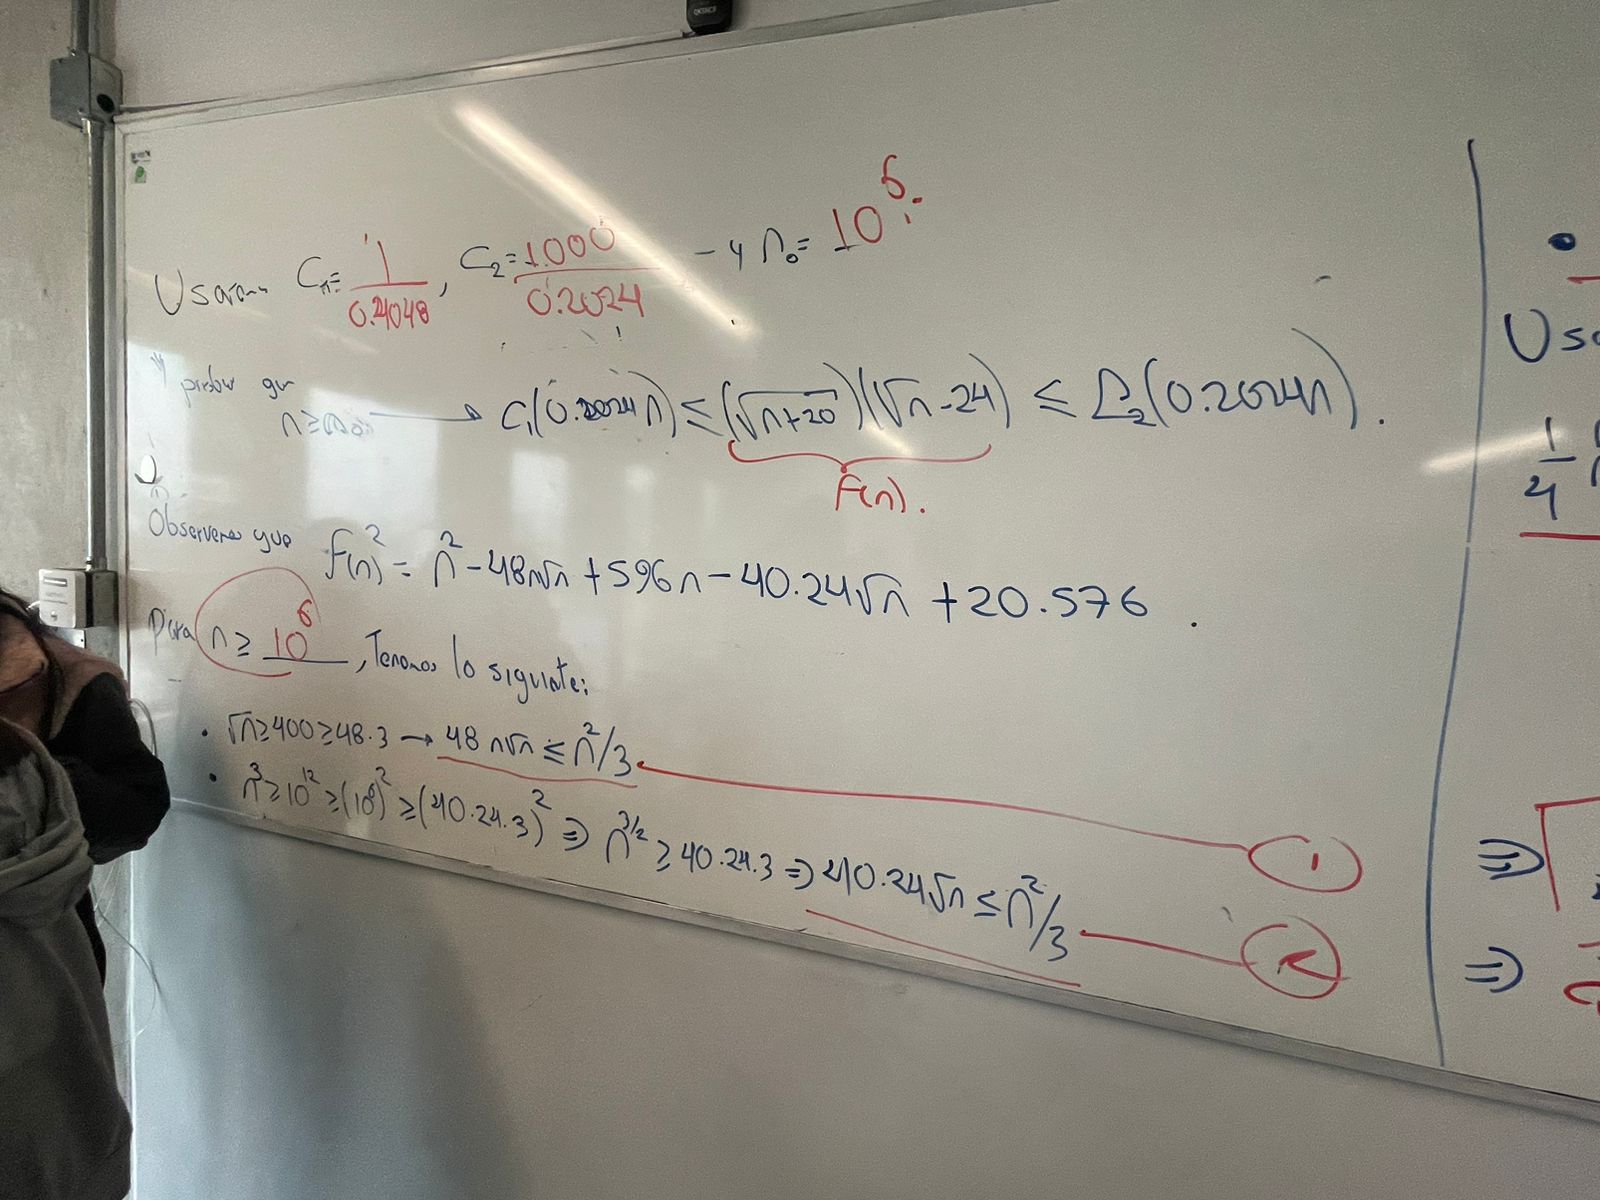 Usarem C₁= 1/0.4048, C₂= 1000/0.2024 – y n₀= 10⁶.
y probar que
n≥n₀ → C₁(0.2024n) ≤ (√n+20)(√n-24) ≤ C₂(0.2024n).
F(n).
Observemos que f(n)² = n² - 48n√n + 596n - 40.24√n + 20.576.
Para n ≥ 10⁶, Tenemos lo siguiente:
• √n ≥ 400 ≥ 48.3 → 48 n√n ≤ n²/3 1
• n³ ≥ 10¹² ≥ (10⁶)² ≥ (40.24.3)² ⇒ n^{3/2} ≥ 40.24.3 ⇒ 40.24√n ≤ n²/3
•
1/4
⇒
⇒